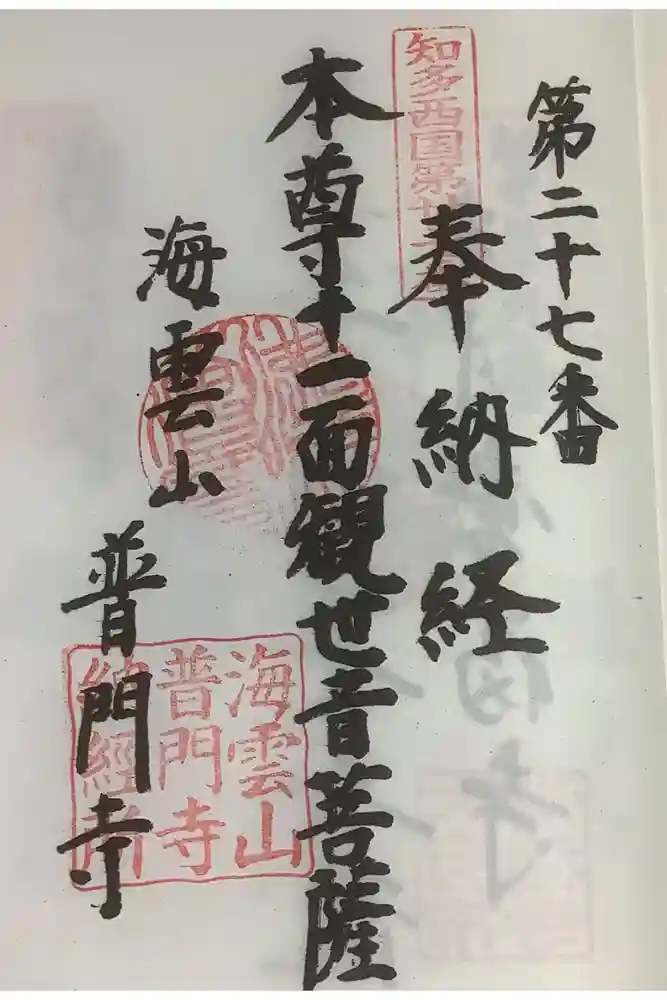 第二十七番
知多西国第
奉納経
本尊十一面観世音菩薩
海雲山
普門寺
海雲山
普門寺
納經所